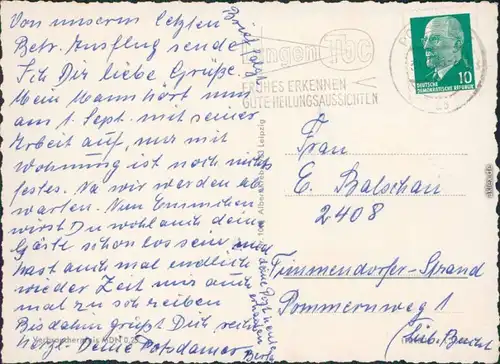 Von unserm letzten
Betr. Ausflug sende
Ich Dir liebe Grüße.
Mein Mann hört nun
am 1. Sept. mit seiner
Arbeit auf, nur mit
Wohnung ist noch nichts
festes. Na wir werden ab
warten. Nun
wirst Du wohl auch deine
Gäste schon los sein, und
hast auch mal endlich
wieder Zeit mir auch
mal zu schreiben
Bis dahin grüßt Dich recht
herzl. Deine Potsdamer
Brief folgt
deine Post
erhalten
Verbraucherpreis MDN 0,25
Lungen Tbc
FRÜHES ERKENNEN
GUTE HEILUNGSAUSSICHTEN
10
DEUTSCHE
DEMOKRATISCHE REPUBLIK
Frau
E. Balschau
2408
Timmendorfer-Strand
Pommernweg 1
(Lüb. Bucht)